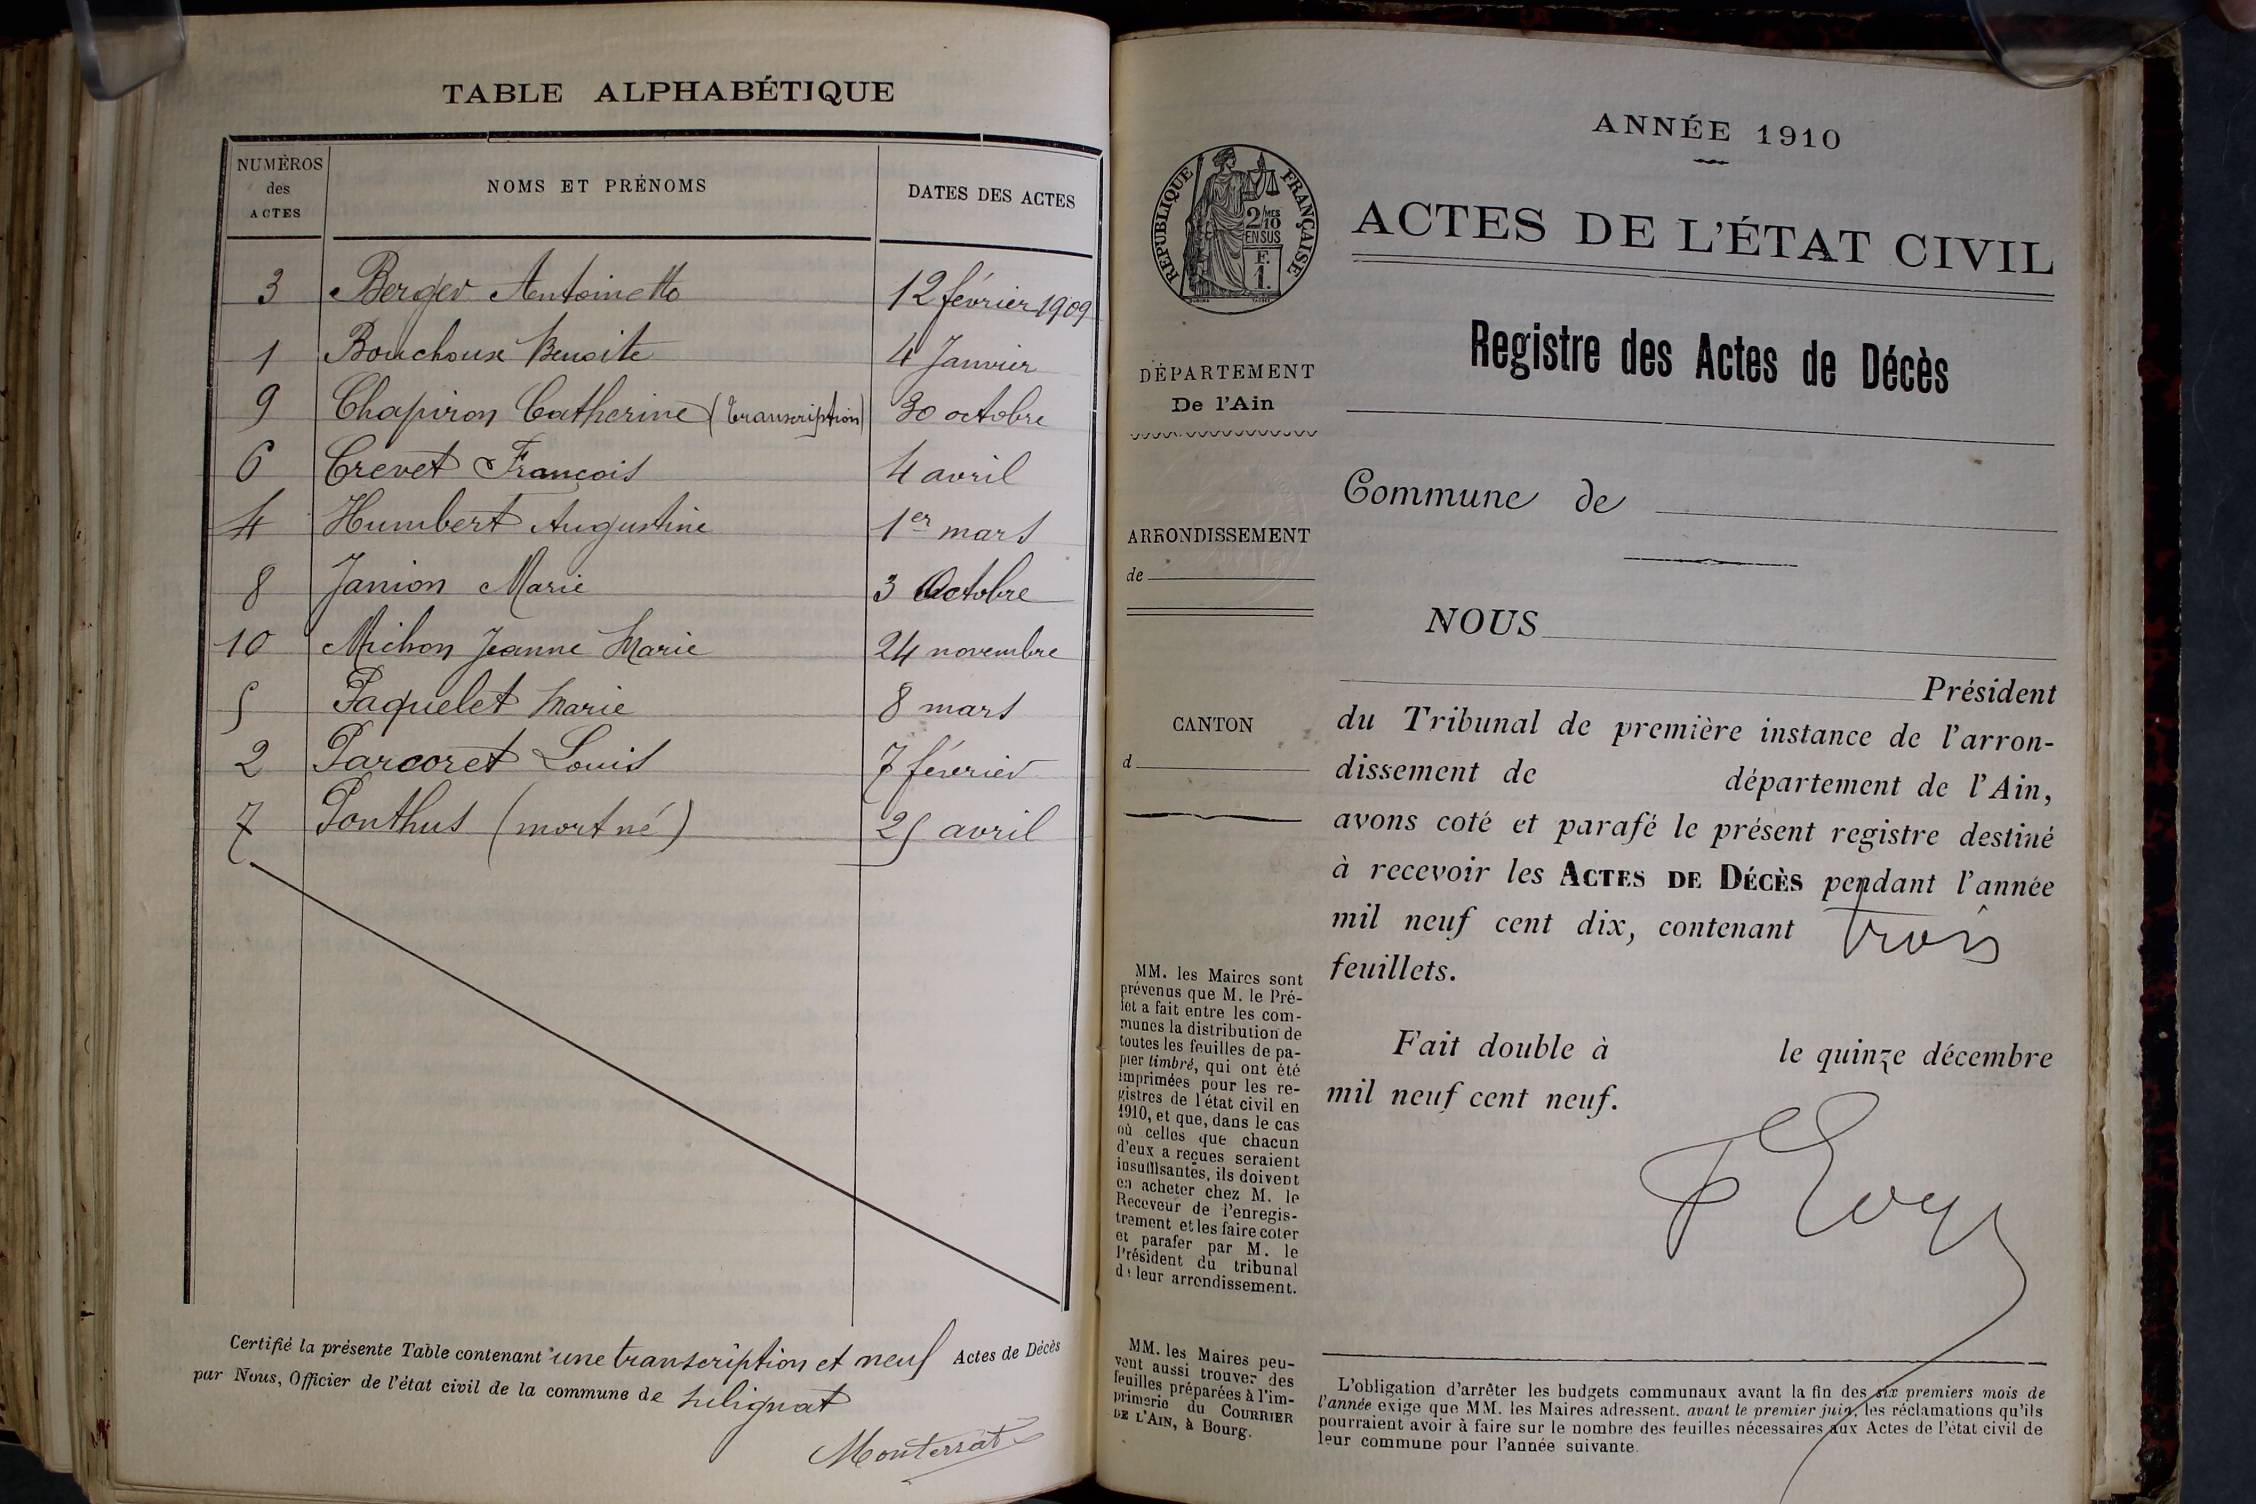 TABLE ALPHABÉTIQUE
NUMÉROS des ACTES NOMS ET PRÉNOMS DATES DES ACTES
3 Berger Antoinette 12 février 1909
1 Bouchoux Benoite 4 Janvier
9 Chapiron Catherine (transcription) 30 octobre
6 Crevet François 4 avril
4 Humbert Augustine 1er mars
8 Janion Marie 3 Octobre
10 Michon Jeanne Marie 24 novembre
5 Paquelet Marie 8 mars
2 Parcoret Louis 7 février
7 Ponthus (mort né) 25 avril
Certifié la présente Table contenant une transcription et neuf Actes de Décès
par Nous, Officier de l'état civil de la commune de Lulignat
Monterrat
ANNÉE 1910
RÉPUBLIQUE FRANÇAISE
2/10 MES
EN SUS
F.
1.
ACTES DE L'ÉTAT CIVIL
Registre des Actes de Décès
DÉPARTEMENT
De l'Ain
ARRONDISSEMENT
de
CANTON
d
Commune de
NOUS
Président
du Tribunal de première instance de l'arron-
dissement de département de l'Ain,
avons coté et parafé le présent registre destiné
à recevoir les ACTES DE DÉCÈS pendant l'année
mil neuf cent dix, contenant trois
feuillets.
Fait double à le quinze décembre
mil neuf cent neuf.
MM. les Maires sont
prévenus que M. le Pré-
fet a fait entre les com-
munes la distribution de
toutes les feuilles de pa-
pier timbré, qui ont été
imprimées pour les re-
gistres de l'état civil en
1910, et que, dans le cas
où celles que chacun
d'eux a reçues seraient
insuffisantes, ils doivent
en acheter chez M. le
Receveur de l'enregis-
trement et les faire coter
et parafer par M. le
Président du tribunal
de leur arrondissement.
MM. les Maires peu-
vent aussi trouver des
feuilles préparées à l'im-
primerie du COURRIER
DE L'AIN, à Bourg.
L'obligation d'arrêter les budgets communaux avant la fin des six premiers mois de
l'année exige que MM. les Maires adressent, avant le premier juin, les réclamations qu'ils
pourraient avoir à faire sur le nombre des feuilles nécessaires aux Actes de l'état civil de
leur commune pour l'année suivante.